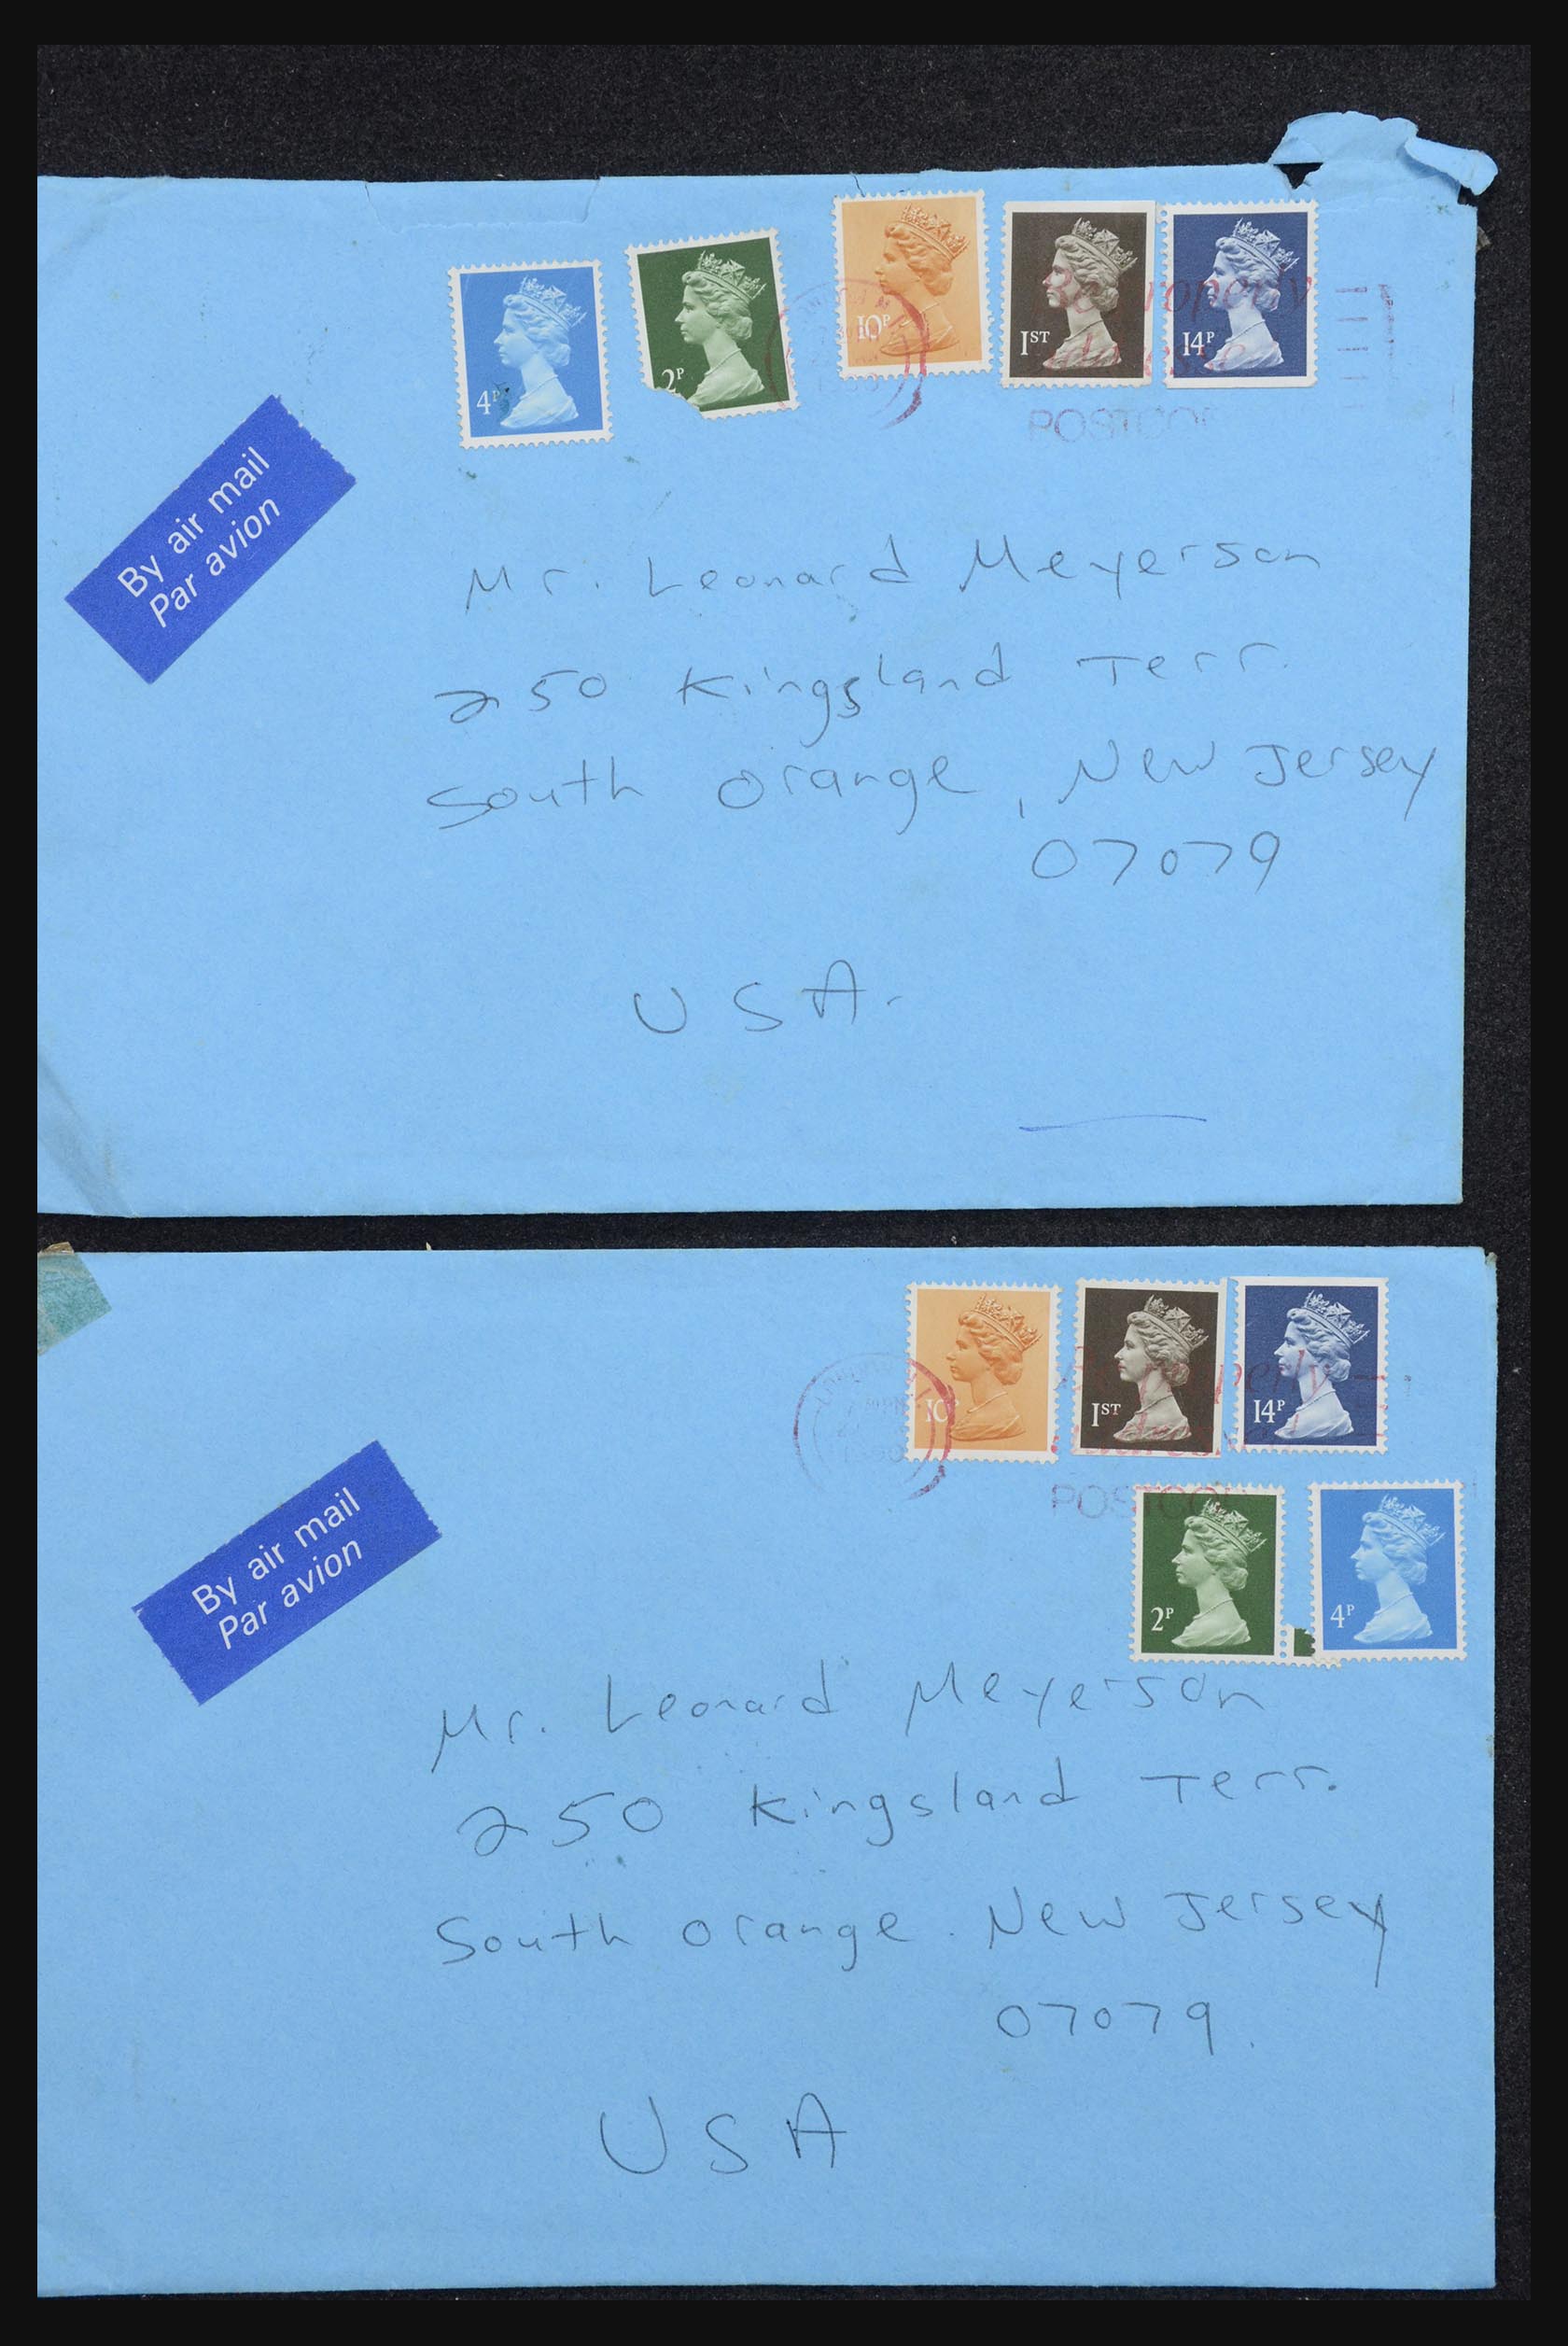 4P
2P
10P
1ST
14P
properly
POSTCO
By air mail
Par avion
Mr. Leonard Meyerson
250 Kingsland Terr.
South Orange, New Jersey
07079
USA.
10P
1ST
14P
POSTCO
2P
4P
By air mail
Par avion
Mr. Leonard Meyerson
250 Kingsland Terr.
South Orange. New Jersey
07079.
USA